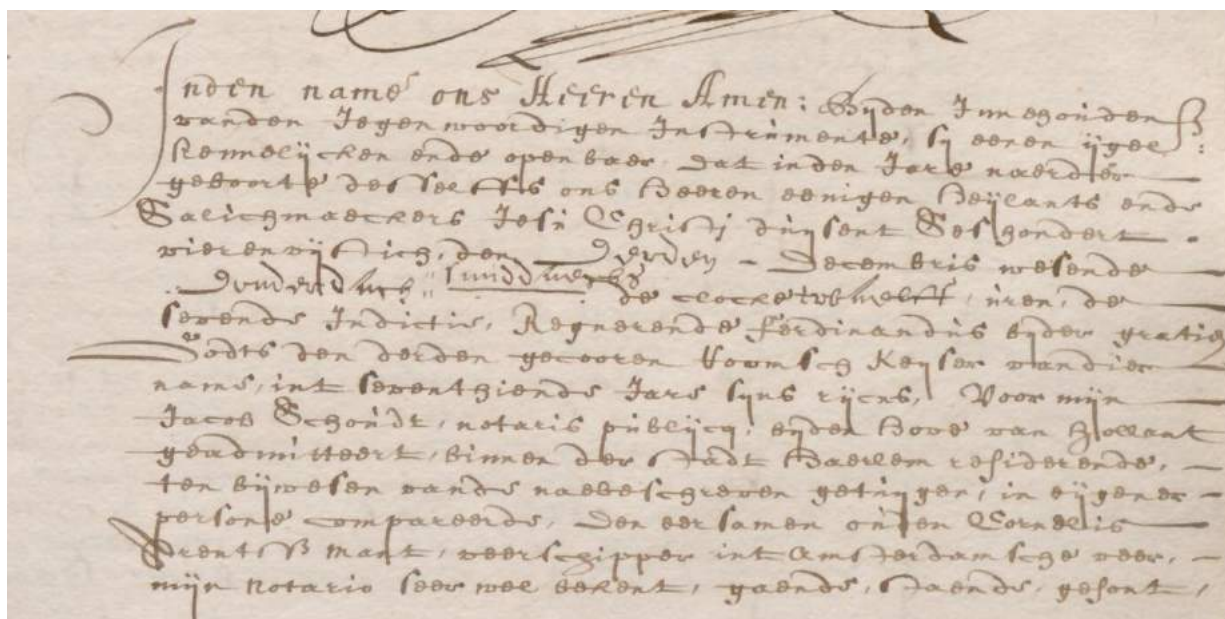 Inden name ons Heeren Amen: Bijden Innehouden
vanden Jegenwoordigen Instrumente, sy eenen ijgel:
Kennelijcken ende openbaer, dat inden Jare naerder
geboorte desselffs ons Heeren eenigen Heijlants ende
Salichmaeckers Jesu Christj duijsent Seshondert
vierenvijftich, den Derden Decembris wesende
Donderdach smiddaechs de clocke twaelff, uren, de
sevende Indictie, Regnerende Ferdinandus bijder gratie
Godts den derden gecooren Roomsch Keijser van dier
name, int seventhiende Jare sijns rijcns, Voor mijn
Jacob Schoudt, notaris publijcq, bijden Hove van Hollant
geadmitteert, binnen der stadt Haerlem residerende,
ten bijwesen vande naebeschreven getuijgen, in eijgener
persone compareerde, Den eersamen Cornelis
Arentsz Mant, veerschipper int Amsterdamsche veer,
mijn Notario seer wel bekent, gaende, staende, gesont,